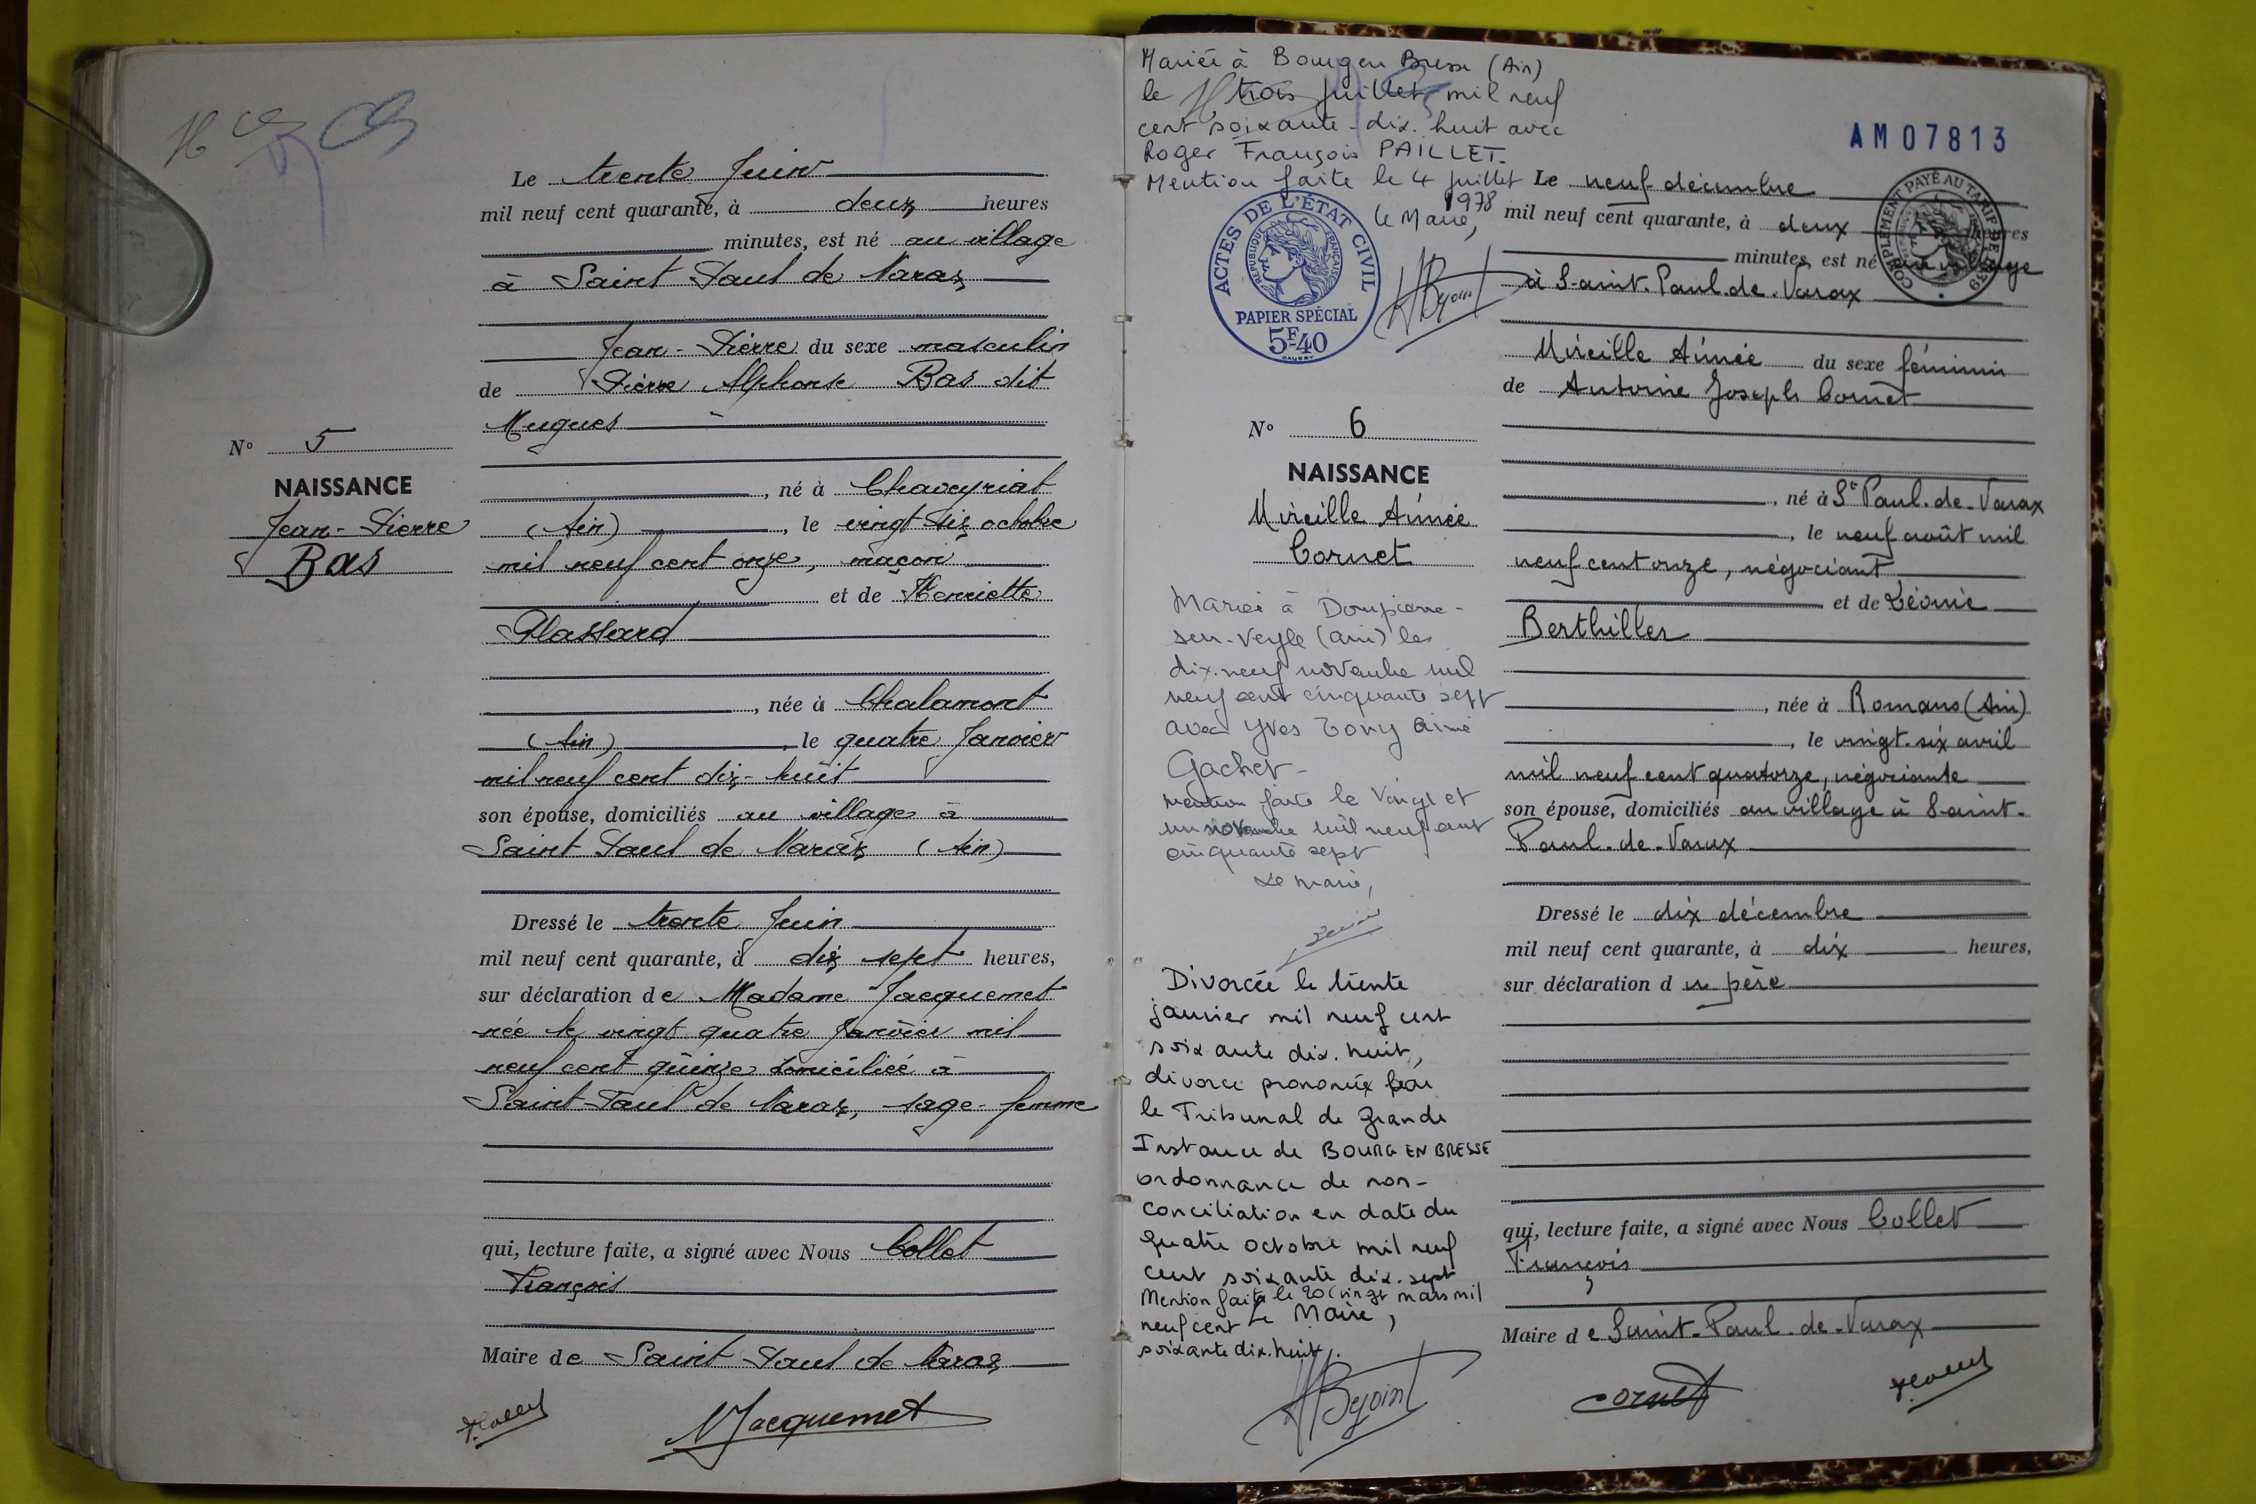 Le trente Juin
mil neuf cent quarante, à deux heures
minutes, est né au village
à Saint Paul de Varax
Jean-Pierre du sexe masculin
de Pierre Alphonse Bas dit
Mugues
N° 5
NAISSANCE
Jean-Pierre
Bas
, né à Chaveyriat
(Ain), le vingt six octobre
mil neuf cent onze, maçon
et de Henriette
Plassard
, née à Chalamont
(Ain), le quatre Janvier
mil neuf cent dix-huit
son épouse, domiciliés au village à
Saint Paul de Varax (Ain)
Dressé le trente Juin
mil neuf cent quarante, à dix sept heures,
sur déclaration de Madame Jacquemet
née le vingt quatre Janvier mil
neuf cent quinze domiciliée à
Saint-Paul de Varax, sage-femme
qui, lecture faite, a signé avec Nous Collet
François
Maire de Saint Paul de Varax
F. Collet
Jacquemet
Mariée à Bourg en Bresse (Ain)
le trois juillet mil neuf
cent soixante-dix. huit avec
Roger François PAILLET.
Mention faite le 4 juillet
1978
Le Maire,
ACTES DE L'ÉTAT CIVIL
RÉPUBLIQUE FRANÇAISE
PAPIER SPÉCIAL
5F40
Béjoint
AM07813
COMPLÉMENT PAYÉ AU TARIF DE 1939
Le neuf décembre
mil neuf cent quarante, à deux heures
minutes, est né au village
à Saint-Paul-de-Varax
Mireille Aimée du sexe féminin
de Antoine Joseph Cornet
N° 6
NAISSANCE
Mireille Aimée
Cornet
, né à St Paul-de-Varax
, le neuf août mil
neuf cent onze, négociant
et de Léonie
Berthiller
, née à Romans (Ain)
, le vingt-six avril
mil neuf cent quatorze, négociante
son épouse, domiciliés au village à Saint-
Paul-de-Varax
Dressé le dix décembre
mil neuf cent quarante, à dix heures,
sur déclaration du père
qui, lecture faite, a signé avec Nous Collet
François,
Maire de Saint-Paul-de-Varax
Cornet
F. Collet
Mariée à Dompierre-
sur-Veyle (Ain) le
dix-neuf novembre mil
neuf cent cinquante sept
avec Yves Tony Aimé
Gachet-
Mention faite le vingt et
un novembre mil neuf cent
cinquante sept
Le Maire,
Divorcée le trente
janvier mil neuf cent
soixante dix. huit,
divorce prononcé par
le Tribunal de Grande
Instance de BOURG EN BRESSE
ordonnance de non-
conciliation en date du
quatre octobre mil neuf
cent soixante dix. sept
Mention faite le 20 (vingt mars mil
neuf cent Le Maire,
soixante dix. huit).
Béjoint